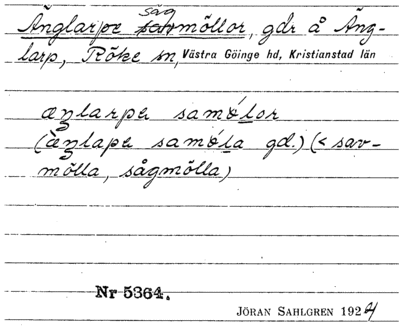 såg
Änglarpe savmöllor, gdr å Äng-
larp, Röke sn, Västra Göinge hd, Kristianstad län
æŋlarpa samólor
(æ̀ŋlapa samóla gd.) (< sav-
mölla, sågmölla)
Nr 5364.
JÖRAN SAHLGREN 1924